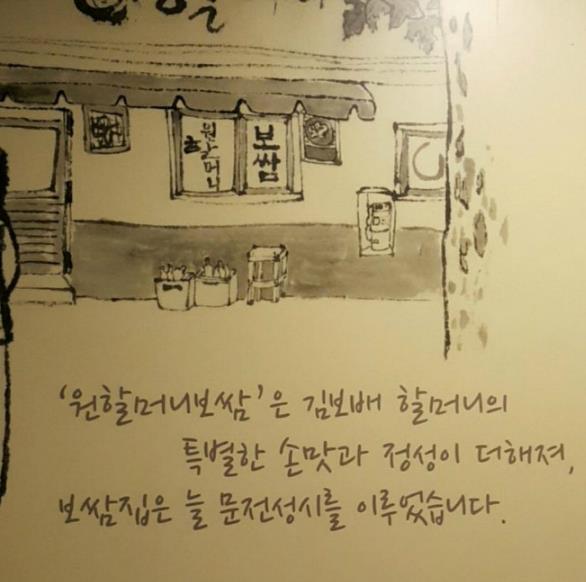 원할머니
보쌈
‘원할머니보쌈’은 김보배 할머니의
특별한 손맛과 정성이 더해져,
보쌈집은 늘 문전성시를 이루었습니다.